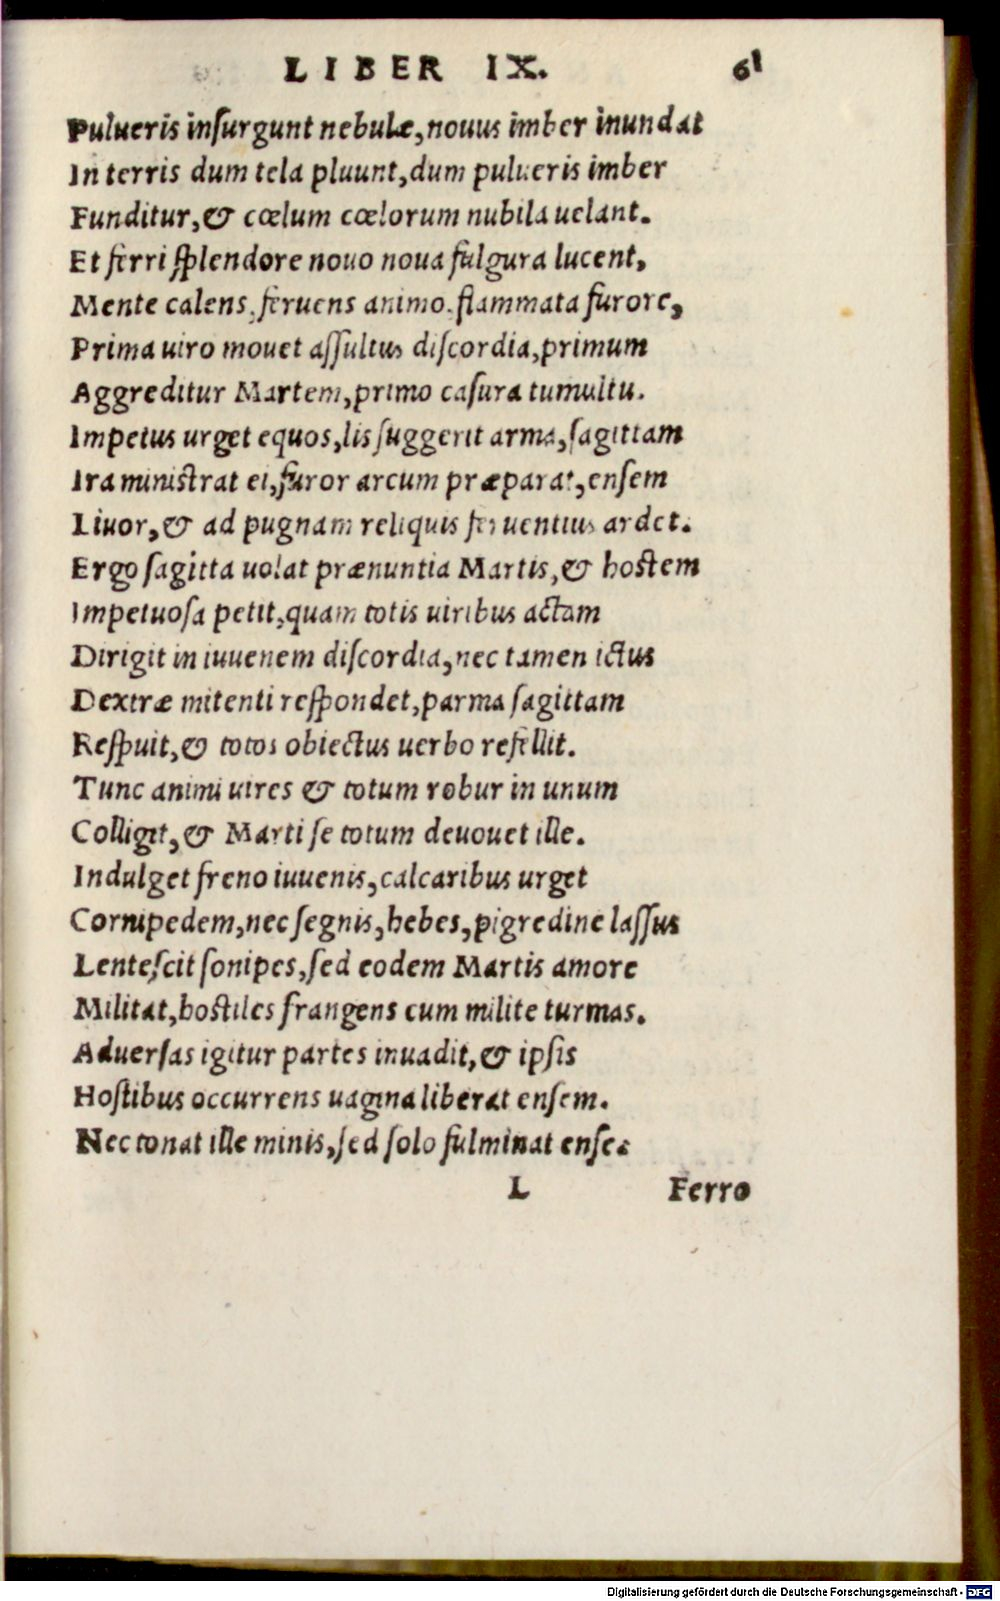 LIBER IX. 61
Pulueris insurgunt nebulæ, nouus imber inundat
In terris dum tela pluunt, dum pulueris imber
Funditur, & cœlum cœlorum nubila uelant.
Et ferri splendore nouo noua fulgura lucent,
Mente calens, feruens animo, flammata furore,
Prima uiro mouet assultus discordia, primum
Aggreditur Martem, primo casura tumultu.
Impetus urget equos, lis suggerit arma, sagittam
Ira ministrat ei, furor arcum præparat, ensem
Liuor, & ad pugnam reliquis feruentius ardet.
Ergo sagitta uolat prænuntia Martis, & hostem
Impetuosa petit, quam totis uiribus actam
Dirigit in iuuenem discordia, nec tamen ictus
Dextræ mitenti respondet, parma sagittam
Respuit, & totos obiectus uerbo refellit.
Tunc animi uires & totum robur in unum
Colligit, & Marti se totum deuouet ille.
Indulget freno iuuenis, calcaribus urget
Cornipedem, nec segnis, hebes, pigredine lassus
Lentescit sonipes, sed eodem Martis amore
Militat, hostiles frangens cum milite turmas.
Aduersas igitur partes inuadit, & ipsis
Hostibus occurrens uagina liberat ensem.
Nec tonat ille minis, sed solo fulminat ense.
L Ferro
Digitalisierung gefördert durch die Deutsche Forschungsgemeinschaft - DFG